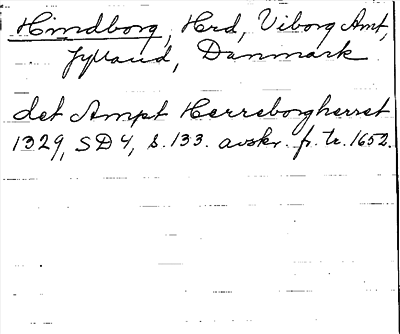 Hindborg, Hrd, Viborg Amt,
Jylland, Danmark
det Ampt Herreborgherret
1329, SD 4, s. 133. avskr. fr. tr. 1652.